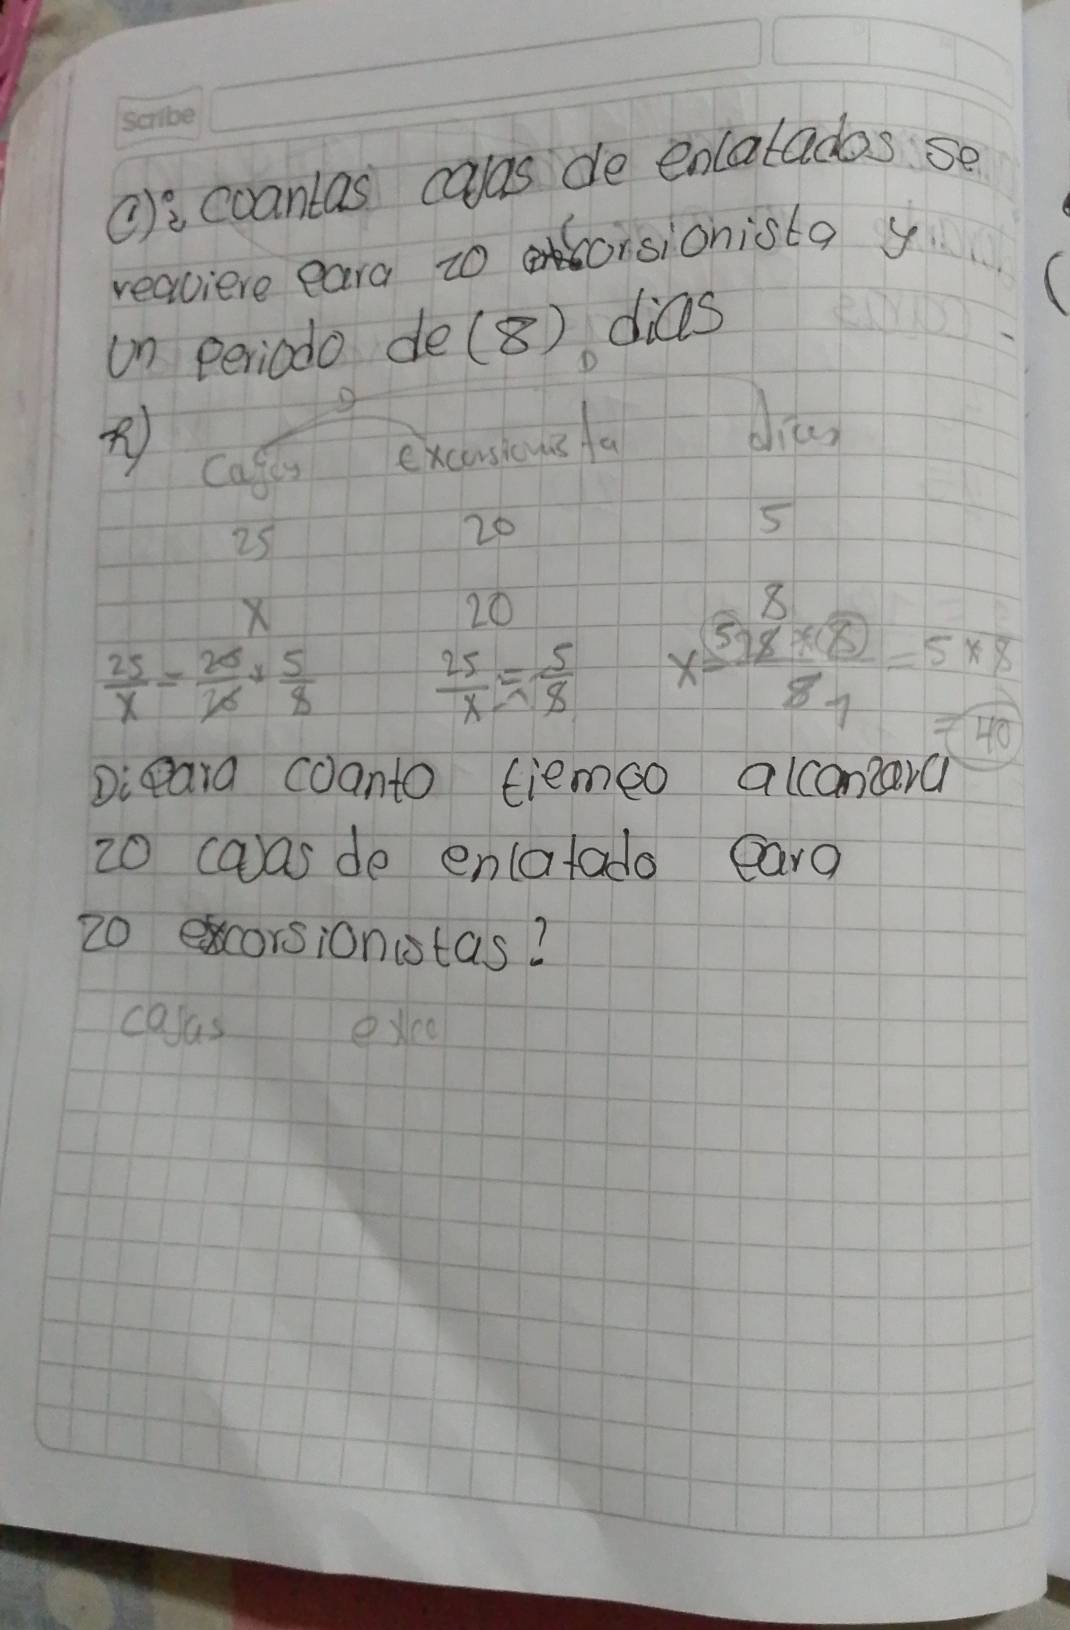 Scribe
C)¿ coantas cajas de enlatados se
requiere para 20 excorsionista y
un periodo de (8) dias
R)
D D
Cajas excursionista dias
25 20 5
x 20 8
25/x = 20/20 * 5/8 25/x = 5/8 x = * 8 / = 5 * 8
= 40
D¿para coanto tiempo alcanzara
20 cajas de enlatado para
20 excorsionistas?
cajas exco